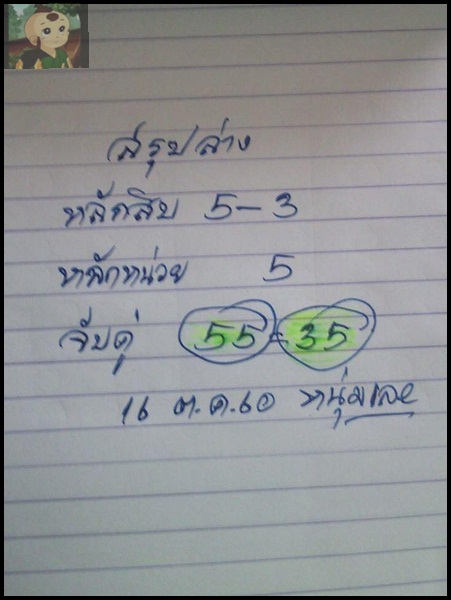 สรุปล่าง
หลักสิบ 5-3
หลักหน่วย 5
จับคู่ 55-35
16 ต.ค.60 หนุ่มเลย